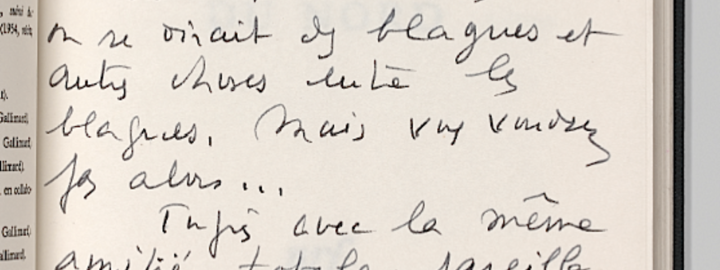 on se dirait des blagues et
autres choses entre les
blagues. Mais vous voudrez
pas alors...
Tupis avec la même
amitié totale pareille
, suivi de
(1954, réés
r).
Gallimard,
Gallimard,
llimard).
en collabo-
Gallimard)
allimard,